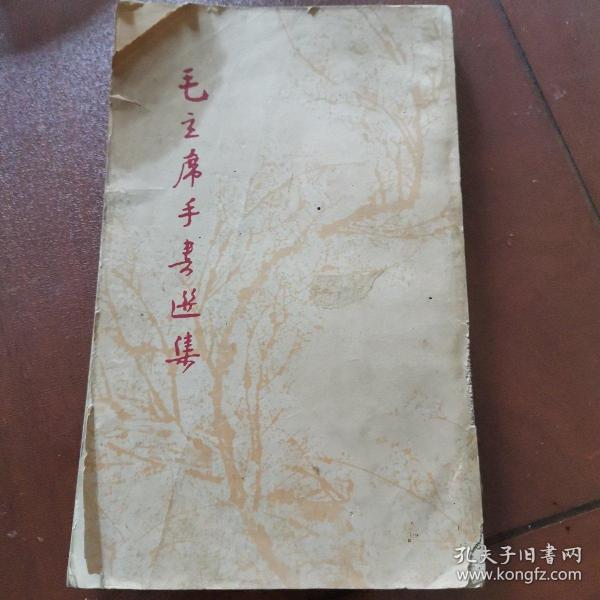 毛主席手书选集
孔夫子旧书网
www.kongfz.com